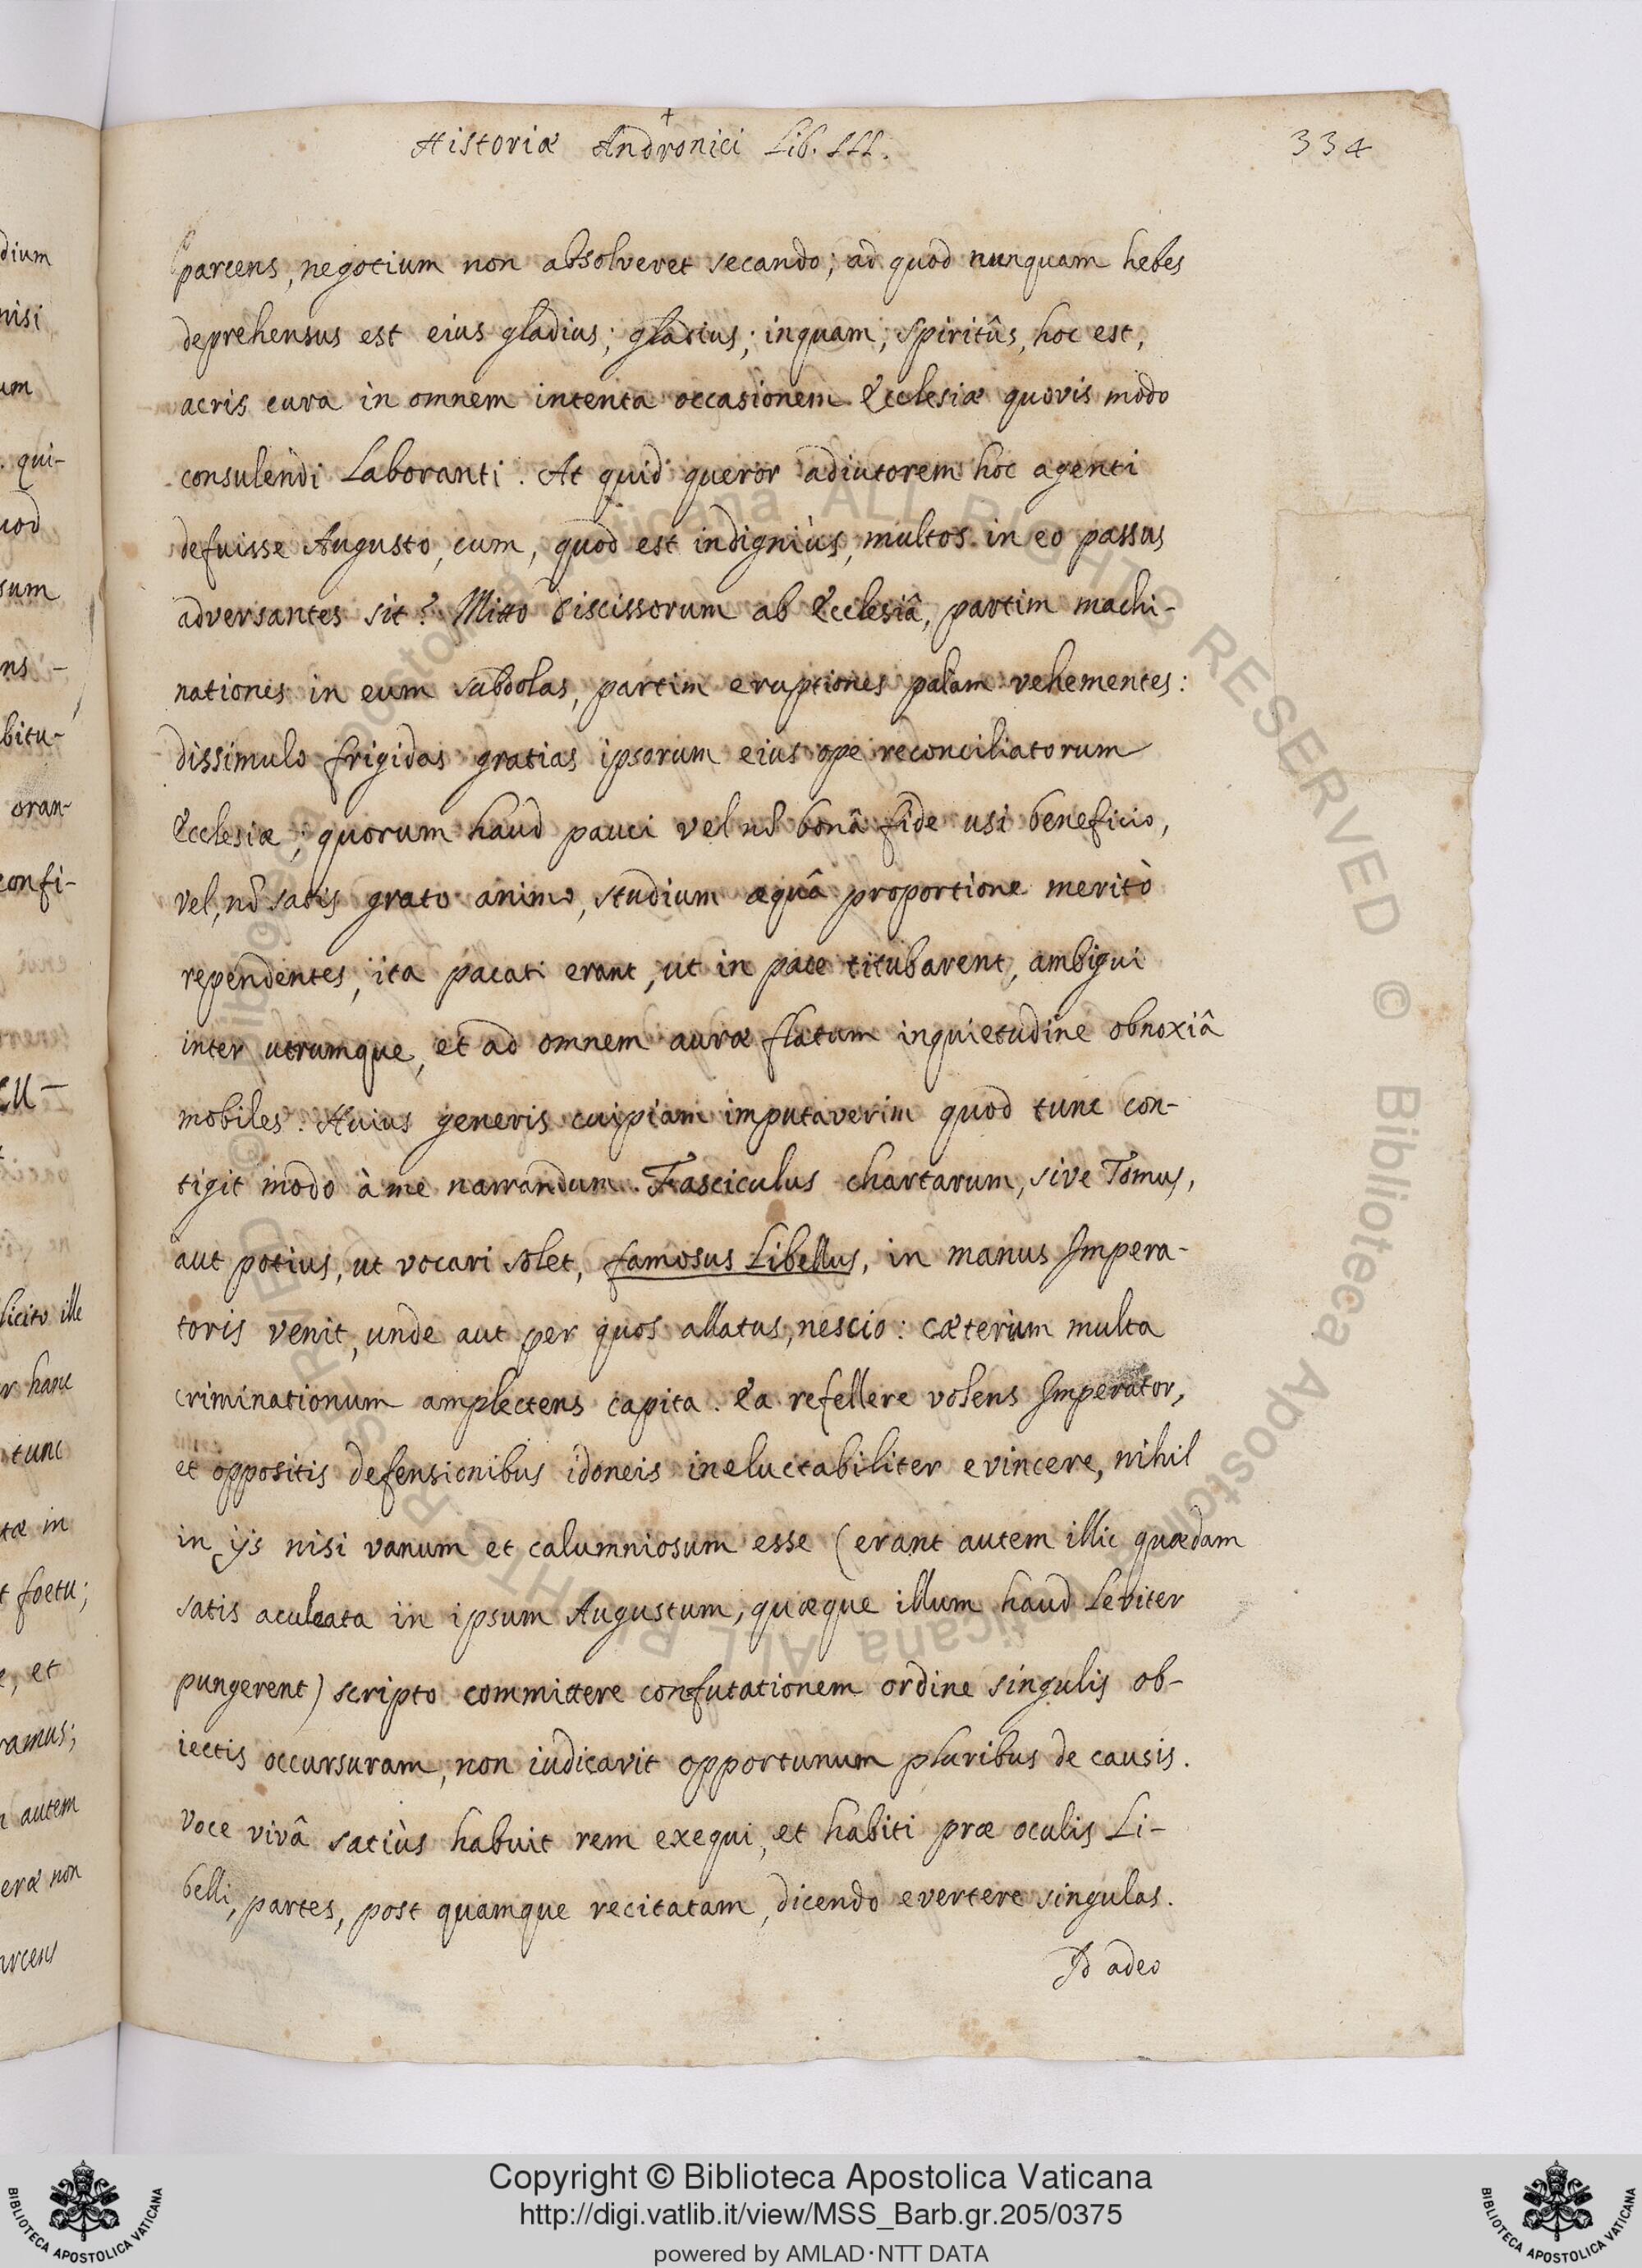 Historiæ Andronici Lib. III.
334
parcens, negotium non absolveret secando; ad quod nunquam hebes
deprehensus est eius gladius; gladius; inquam; Spiritûs, hoc est,
acris cura in omnem intenta occasionem Ecclesiæ quovis modo
consulendi Laboranti. At quid queror adiutorem hoc agenti
defuisse Augusto, cum, quod est indigniùs, multos in eo passus
adversantes sit? Mitto discissorum ab Ecclesiâ, partim machi-
nationes in eum subdolas, partim eruptiones palam vehementes:
dissimulo frigidas gratias ipsorum eius ope reconciliatorum
Ecclesiæ; quorum haud pauci vel nõ bonâ fide usi beneficio,
vel, nõ satis grato animo, studium æquâ proportione meritò
rependentes, ita pacati erant, ut in pace titubarent, ambigui
inter utrumque, et ad omnem auræ flatum inquietudine obnoxiâ
mobiles. Huius generis cuipiam imputaverim quod tunc con-
tigit modo à me narrandum. Fasciculus chartarum, sive Tomus,
aut potius, ut vocari solet, famosus Libellus, in manus Impera-
toris venit, unde aut per quos allatus, nescio: cæterùm multa
criminationum amplectens capita. Ea refellere volens Imperator,
et oppositis defensionibus idoneis ineluctabiliter evincere, nihil
in ijs nisi vanum et calumniosum esse (erant autem illic quædam
satis aculeata in ipsum Augustum, quæque illum haud Leviter
pungerent) scripto committere confutationem ordine singulis ob-
iectis occursuram, non iudicavit opportunum pluribus de causis.
Voce vivâ satiùs habuit rem exequi, et habiti præ oculis Li-
belli, partes, post quamque recitatam, dicendo evertere singulas.
Id adeo
dium
nisi
um
qui-
uod
sum
ns-
bitu-
oran-
confi-
licito ille
r hanc
tunc
tæ in
t foetu;
e, et
ramus;
autem
eræ non
arcens
© Biblioteca Apostolica Vaticana ALL RIGHTS RESERVED
© Biblioteca Apostolica Vaticana ALL RIGHTS RESERVED
Copyright © Biblioteca Apostolica Vaticana
http://digi.vatlib.it/view/MSS_Barb.gr.205/0375
powered by AMLAD·NTT DATA
BIBLIOTECA APOSTOLICA VATICANA
BIBLIOTECA APOSTOLICA VATICANA